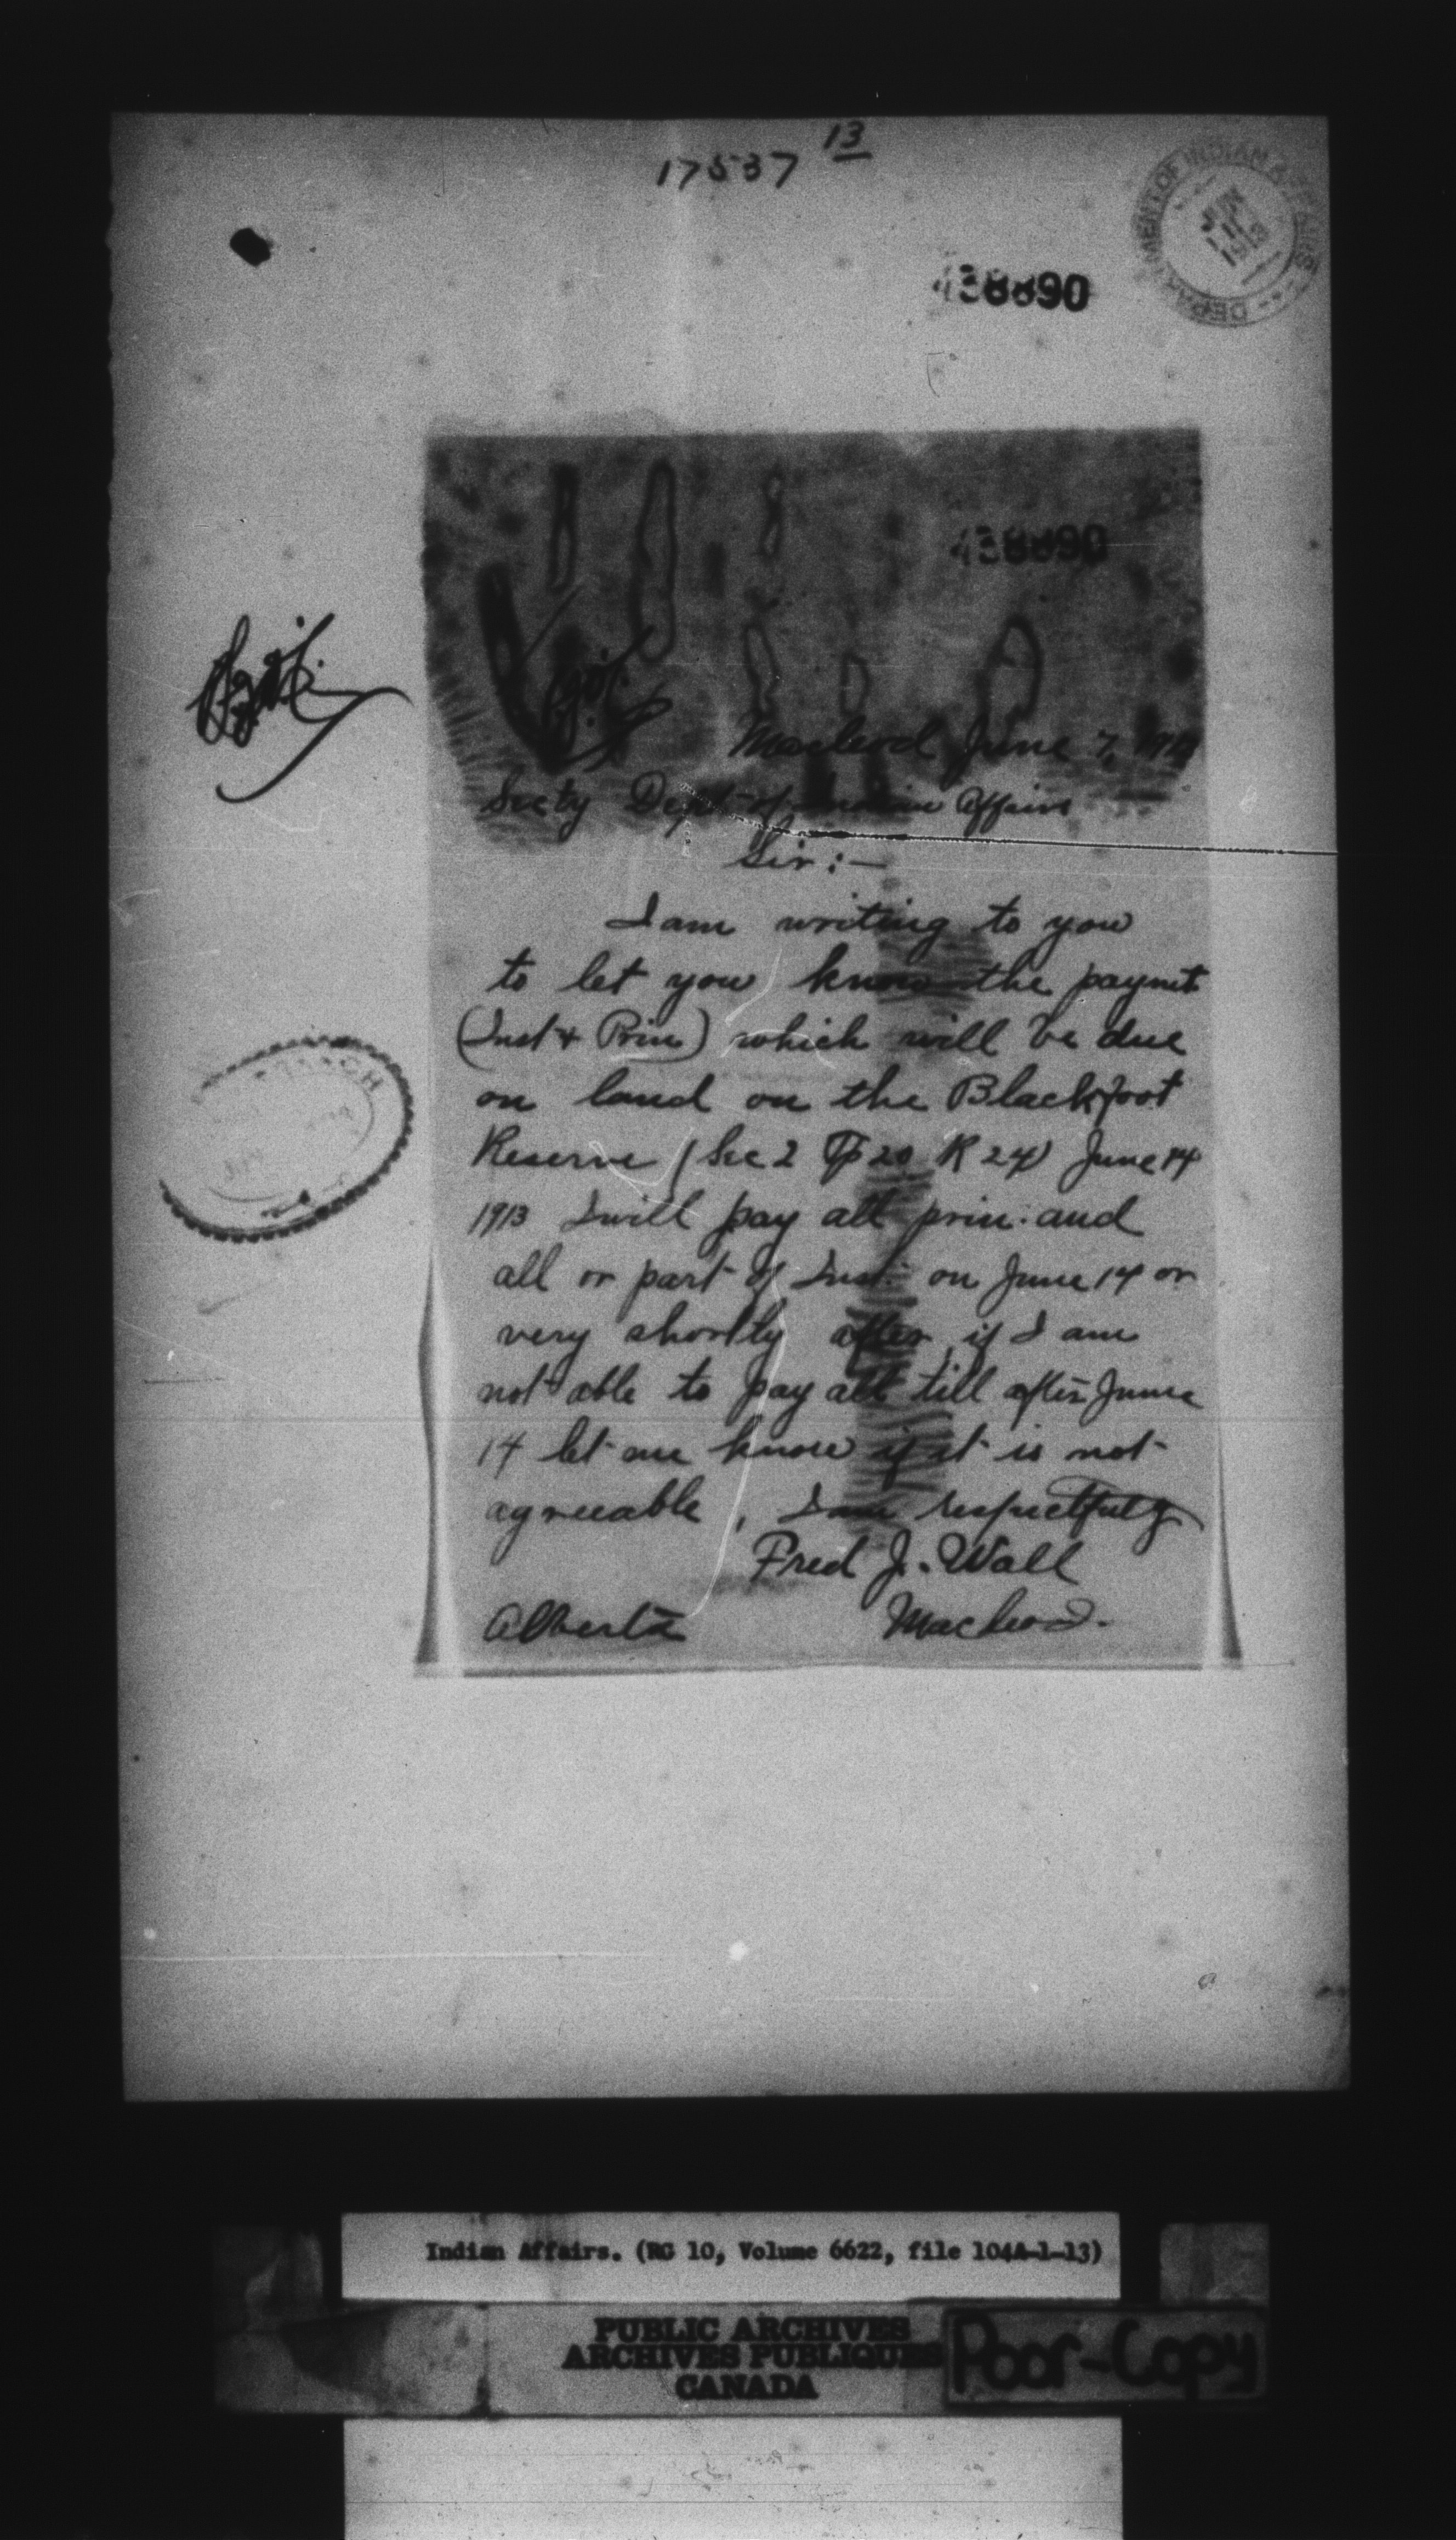 17537 13
DEPARTMENT OF INDIAN AFFAIRS
JUN 11 1913
438890
438890
Macleod June 7, 1913
Secty Dept of Indian Affairs
Sir:—
I am writing to you
to let you know the paymt
(Inst & Prin) which will be due
on land on the Blackfoot
Reserve (Sec 2 Tp 20 R 24) June 14
1913 I will pay all prin. and
all or part of Inst. on June 14 or
very shortly after if I am
not able to pay all till after June
14 let me know if it is not
agreeable, I am respectfully
Fred J. Wall
Alberta Macleod.
Indian Affairs. (RG 10, Volume 6622, file 104A-1-13)
PUBLIC ARCHIVES
ARCHIVES PUBLIQUES
CANADA
Poor-Copy